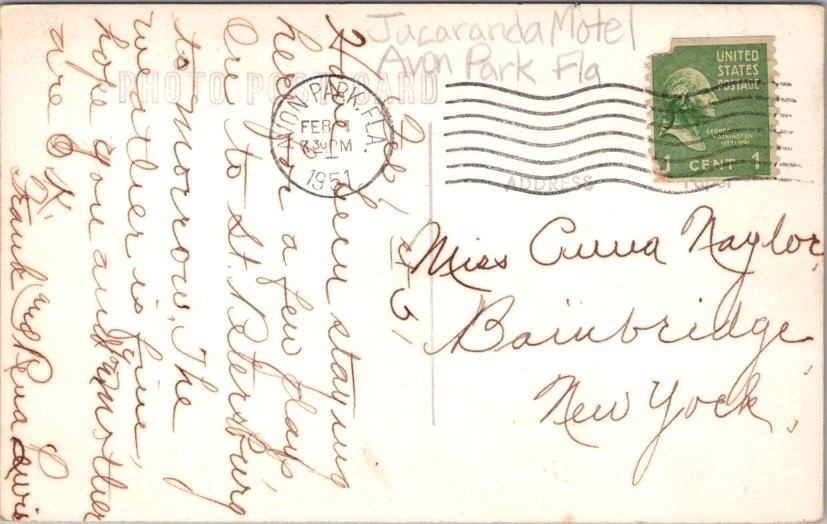 Jacaranda Motel
Avon Park Fla
PHOTO POST CARD
AVON PARK, FLA.
FEB 1
7 30 PM
1951
UNITED
STATES
POSTAGE
GEORGE
WASHINGTON
1 CENT 1
ADDRESS
Feb 1, 51,
Have been staying
here for a few days,
On to St. Petersburg
to morrow. The
weather is fine,
hope you and Mother
are O K.
Frank and Rena Lewis
Miss Anna Naylor,
Bainbridge,
New York,